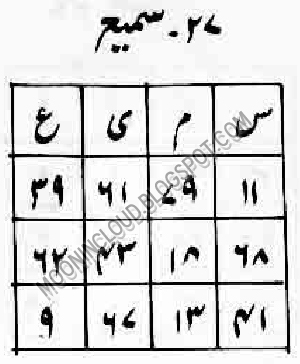 ۲۷۔ سمیع
س م ی ع
۱۱ ۷۹ ۶۱ ۳۹
۶۸ ۱۸ ۴۳ ۶۲
۴۱ ۱۳ ۶۷ ۹
MOONINCLOUD.BLOGSPOT.COM